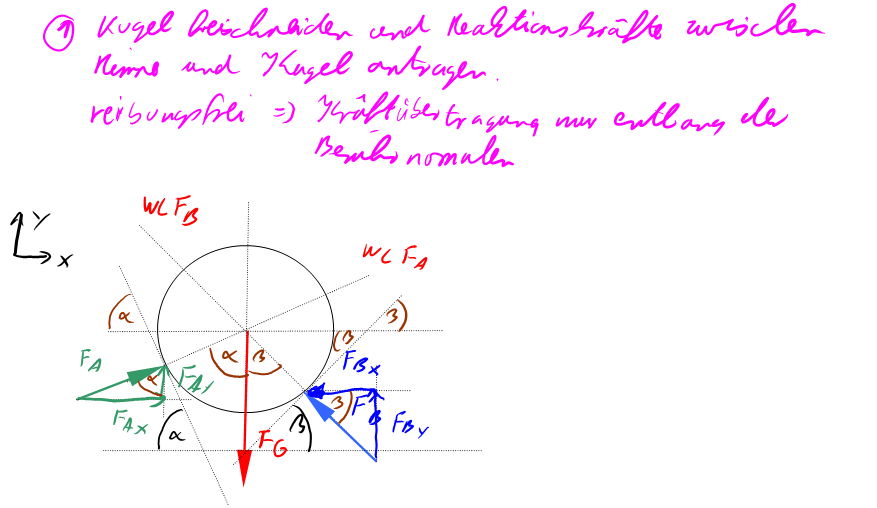 ① Kugel freischneiden und Reaktionskräfte zwischen
Rinne und Kugel antragen.
reibungsfrei => Kraftübertragung nur entlang der
Berührnormalen
WL F_B
Y
X
WL F_A
α
β
β
F_A
α
α
β
F_AY
F_BX
F_AX
β
F_B
F_BY
α
β
F_G